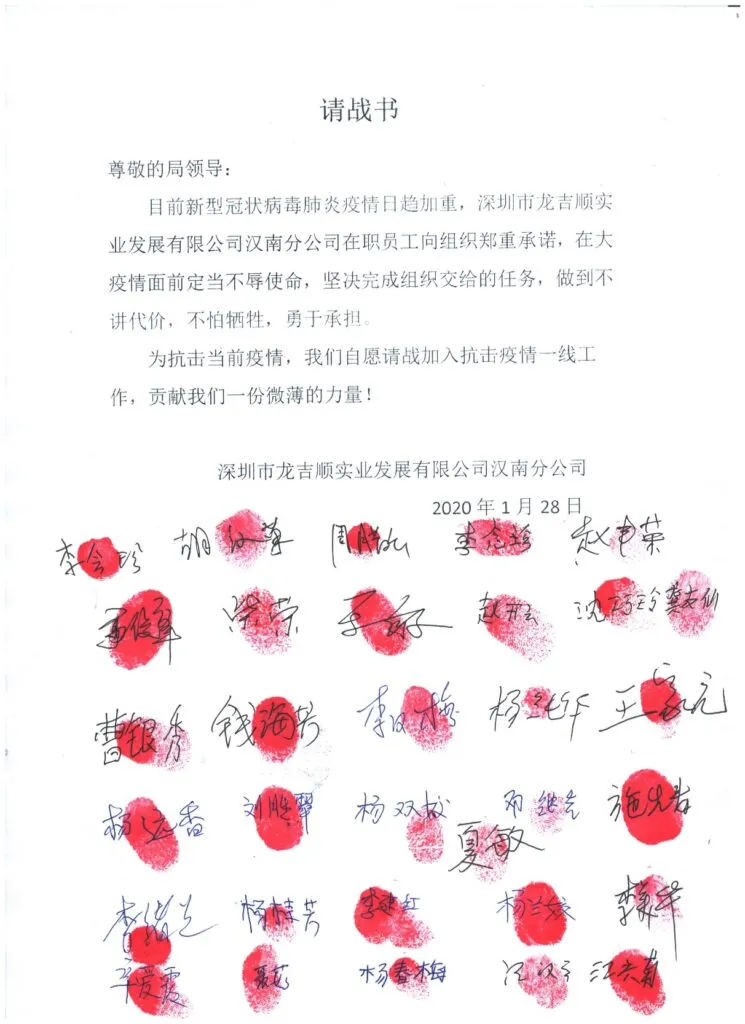 请战书
尊敬的局领导：
目前新型冠状病毒肺炎疫情日趋加重，深圳市龙吉顺实
业发展有限公司汉南分公司在职员工向组织郑重承诺，在大
疫情面前定当不辱使命，坚决完成组织交给的任务，做到不
讲代价，不怕牺牲，勇于承担。
为抗击当前疫情，我们自愿请战加入抗击疫情一线工
作，贡献我们一份微薄的力量！
深圳市龙吉顺实业发展有限公司汉南分公司
2020 年 1 月 28 日
李会珍 李念珍
龚友仙
曹银秀 钱海芳 王家元
杨远香 刘胜翠 杨双校
夏敏
杨桂芳 李建红
辛爱霞 杨春梅